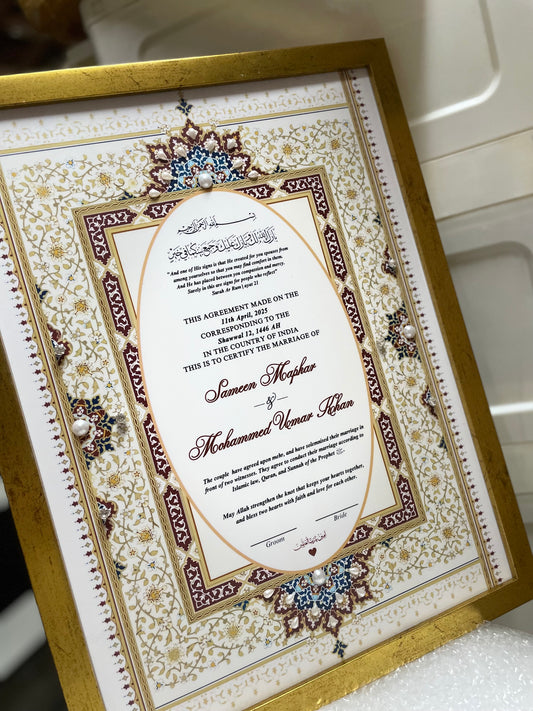 بسم الله الرحمن الرحيم
بارك الله لك و بارك عليك و جمع بينكما في خير
"And one of His signs is that He created for you spouses from
among yourselves so that you may find comfort in them.
And He has placed between you compassion and mercy.
Surely in this are signs for people who reflect"
Surah Ar Rum | ayat 21
THIS AGREEMENT MADE ON THE
11th April, 2025
CORRESPONDING TO THE
Shawwal 12, 1446 AH
IN THE COUNTRY OF INDIA
THIS IS TO CERTIFY THE MARRIAGE OF
Sameen Maphar
&
Mohammed Uzmar Khan
The couple have agreed upon mehr, and have solemnised their marriage in
front of two witnesses. They agree to conduct their marriage according to
Islamic law, Quran, and Sunnah of the Prophet
May Allah strengthen the knot that keeps your hearts together,
and bless two hearts with faith and love for each other.
Groom
Bride